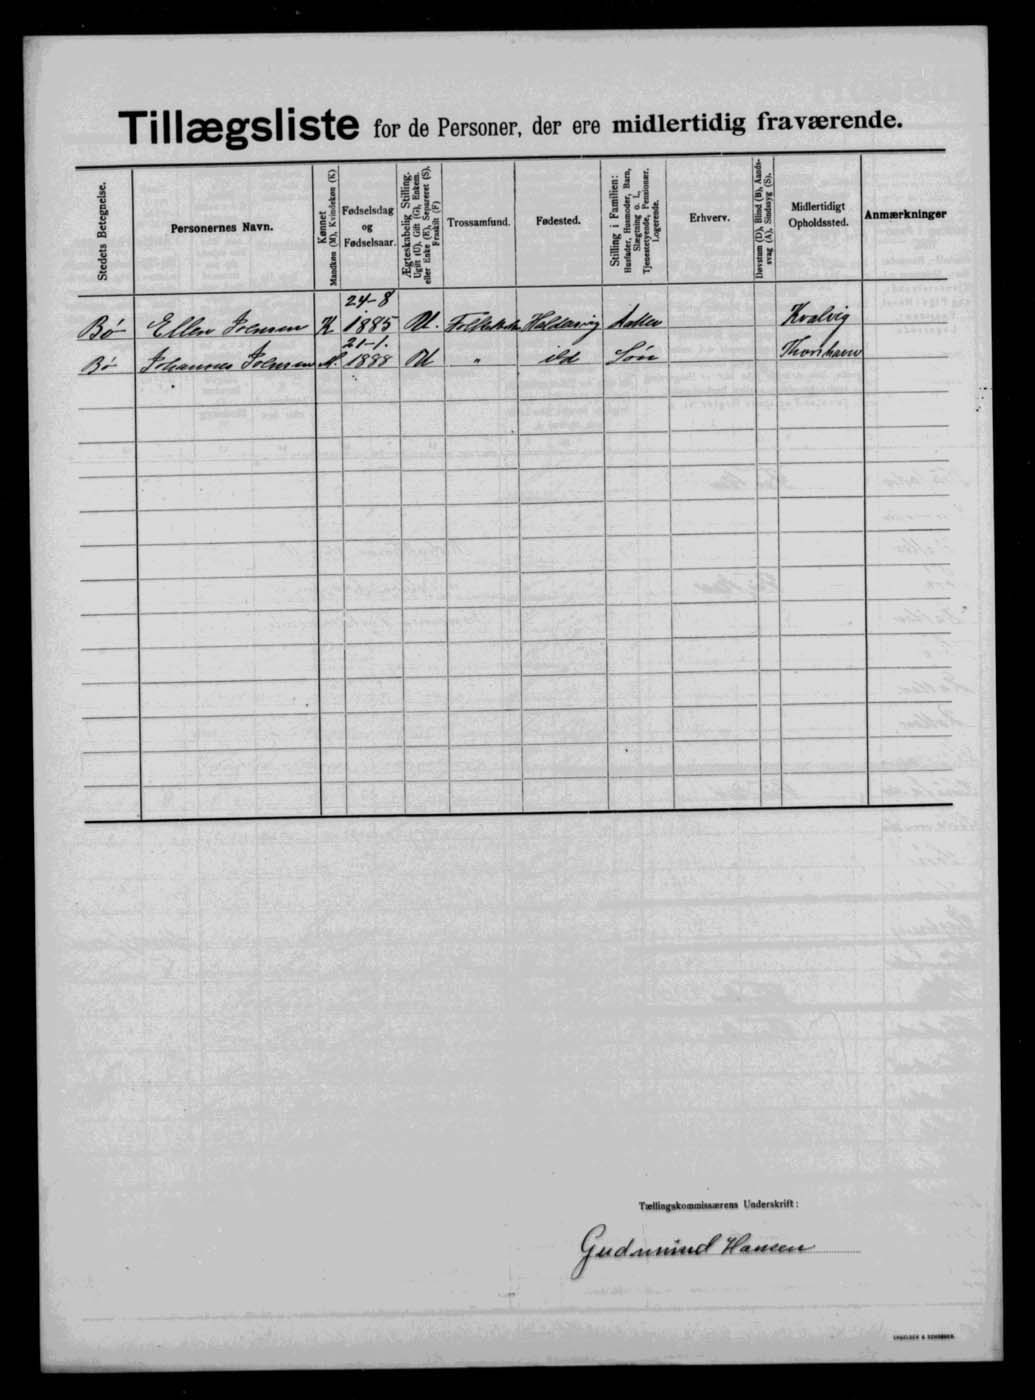 Tillægsliste for de Personer, der ere midlertidig fraværende.
Stedets Betegnelse.
Personernes Navn.
Kønnet
Mandkøn (M), Kvindekøn (K)
Fødselsdag
og
Fødselsaar.
Ægteskabelig Stilling.
Ugift (U), Gift (G), Enkem.
eller Enke (E), Separeret (S),
Fraskilt (F)
Trossamfund.
Fødested.
Stilling i Familien:
Husfader, Husmoder, Barn,
Slægtning o. l.,
Tjenestetyende, Pensionær,
Logerende.
Erhverv.
Døvstum (D), Blind (B), Aands-
svag (A), Sindssyg (S).
Midlertidigt
Opholdssted.
Anmærkninger
24-8
Bø Ellen Joensen K 1885 U. Folkekirken Haldersvig Datter Kvalvig
21-1.
Bø Johannes Joensen M. 1888 U " ild Søn Thorshavn
Tællingskommissærens Underskrift:
Gudmund Hansen